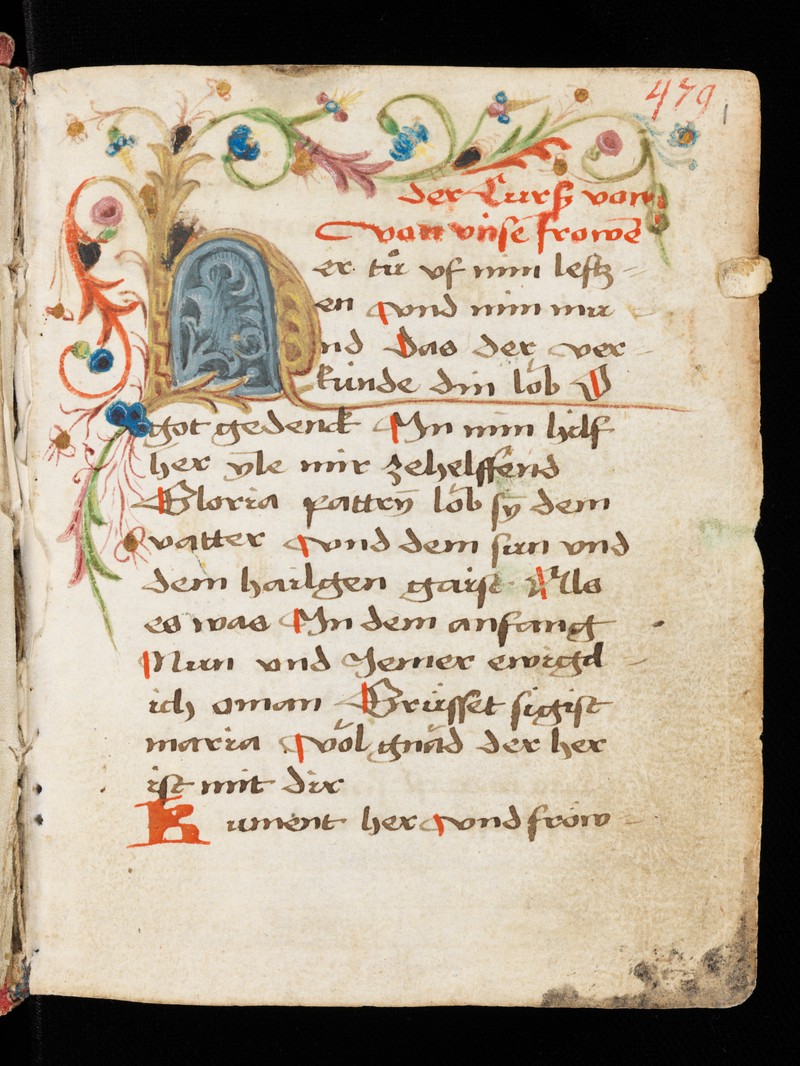 479
1
der Curß von
von vnsē frowē
Her tů vf min leftz
en vnd min mu
nd Das der ver
künde din lob O
got gedenck In min hilf
her yle mir zehelffend
Gloria pattrȳ lob sÿ dem
vatter vnd dem sun vnd
dem hailgen gaist Als
es was In dem anfang
Nun vnd Jemer ewigd
ich aman Grüsset sigist
maria völ gnäd der her
ist mit dir
Kument her vnd fröw